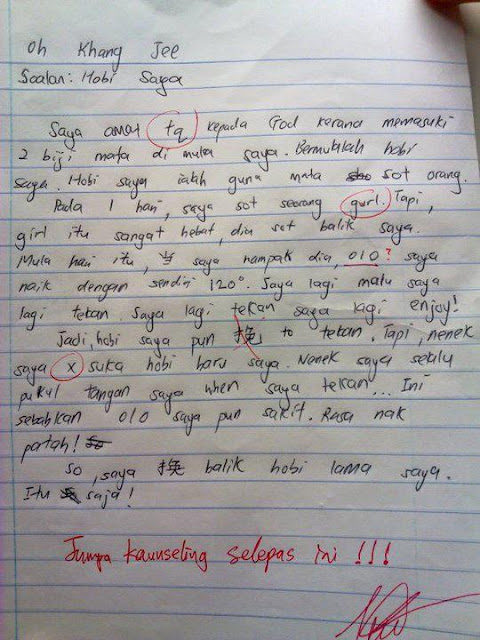 Oh Khang Jee
Soalan: Hobi Saya
Saya amat tq kepada God kerana memasuki
2 biji mata di muka saya. Bermulalah hobi
saya. Hobi saya ialah guna mata sot orang.
Pada 1 hari, saya sot seorang gurl. Tapi,
girl itu sangat hebat, dia sot balik saya.
Mula hari itu, 当 saya nampak dia, 010 ? saya
naik dengan sendiri 120°. Saya lagi malu saya
lagi tekan. Saya lagi tekan saya lagi enjoy!
Jadi, hobi saya pun 换 to tekan. Tapi, nenek
saya x suka hobi baru saya. Nenek saya selalu
pukul tangan saya when saya tekan... Ini
sebabkan 010 saya pun sakit. Rasa nak
patah!
So, saya 换 balik hobi lama saya.
Itu saja!
Jumpa kaunseling selepas ini !!!